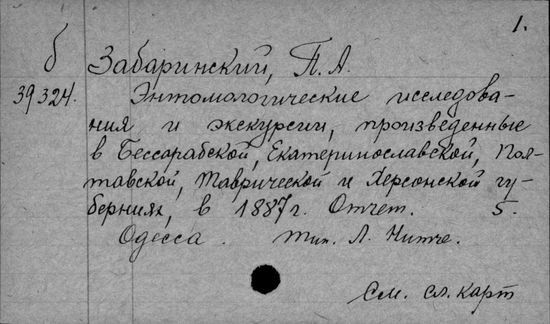 1.
б Забаринский, П. А.
39324. Энтомологические исследова-
ния и экскурсии, произведенные
в Бессарабской, Екатеринославской, Пол-
тавской, Таврической и Херсонской гу-
берниях, в 1887 г. Отчет. 5.
Одесса. тип. Л. Нитче.
См. сл. карт